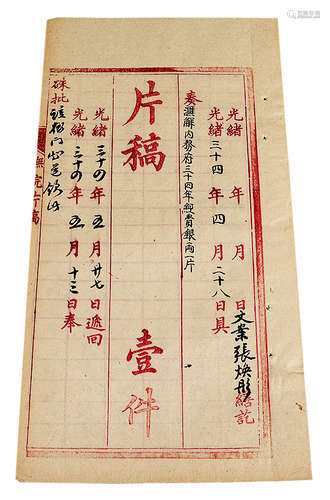 光緒 年 月 日文案張煥彤繕訖
光緒三十四年四月二十八日具
奏滙解內務府三十四年經費銀兩一片
片稿 壹件
光緒三十四年五月廿七日遞回
光緒三十四年五月十三日奉
硃批該衙門知道欽此
無